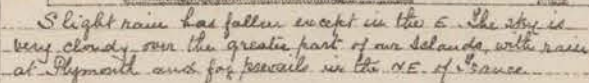 Slight rain has fallen except in the E. The sky is
very cloudy over the greater part of our Islands, with rain
at Plymouth and fog prevails in the NE. of France.